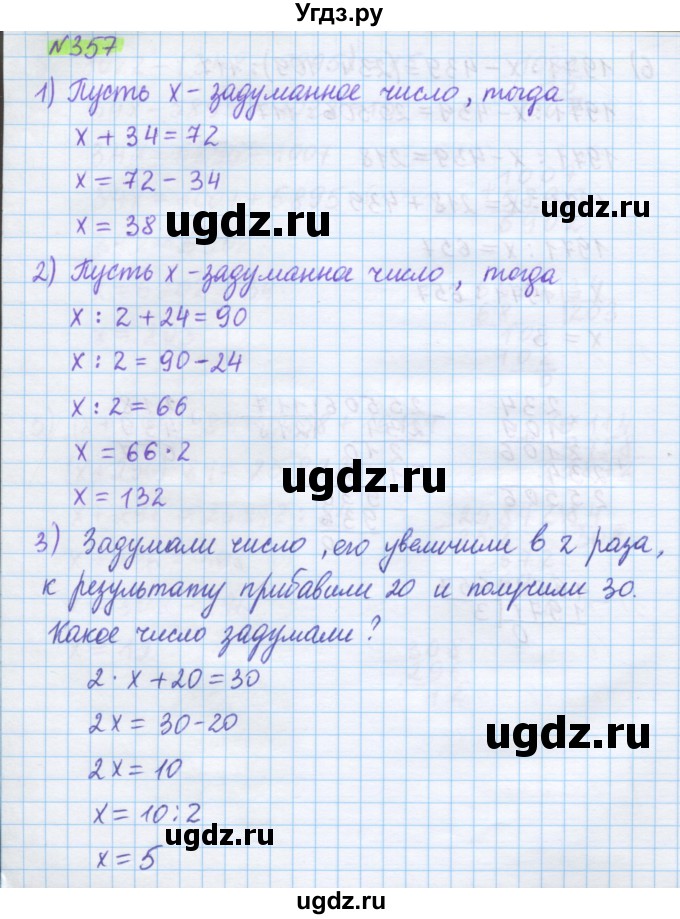 Угдз.ру
№357
1) Пусть х - задуманное число, тогда
х + 34 = 72
х = 72 - 34
х = 38
ugdz.ru
2) Пусть х - задуманное число, тогда
х : 2 + 24 = 90
х : 2 = 90 - 24
х : 2 = 66
х = 66 · 2
ugdz.ru
х = 132
3) Задумали число, его увеличили в 2 раза,
к результату прибавили 20 и получили 30.
Какое число задумали?
2 · х + 20 = 30
2х = 30 - 20
ugdz.ru
2х = 10
х = 10 : 2
ugdz.ru
х = 5
ugdz.ru